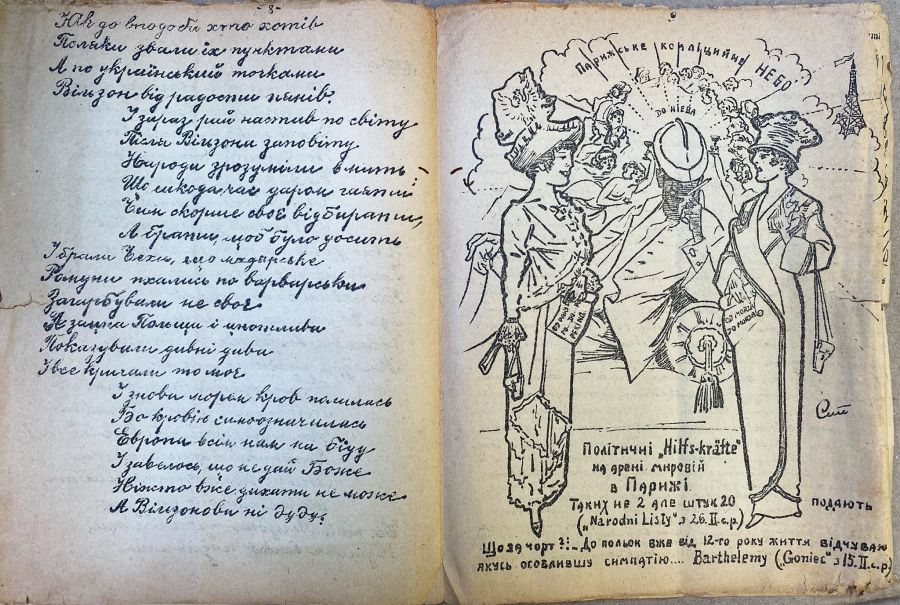 - 8 -
Як до вподоби хто хотів
Поляки звали їх пунктами
А по український точками
Вільзон від радости пянів.
І зараз рай настив по світу
Після Вільзона заповіту
Народи зрозуміли в мить -
Що шкода час даром гаяти:
Чим скорше своє відбирати,
А брати, щоб було досить
І брали Чехи, що мадярське
Румуни пхались по варварськи
Загарбували не своє
А зайша Польща і
Показували дивні дива
І все кричали то моє
І знова морем кров полилась
Бо кровію самоозначилась
Европа всім нам на біду
І завелось, що не дай Боже
Ніхто вже дихати не може
А Вільзонова ні дуду.
Парижське коаліцийне небо
До нієва
Політичні „Hilfs-kräfte"
на арені мировій
в Парижі.
Таких не 2 але штук 20 подають
(„Narodni Listy" з 26. II. с.р.)
Що за чорт?!- До польок вже від 12-го року життя відчуваю
якусь особлившу симпатію.... Barthelemy („Goniec" з 15. II. с.р.)